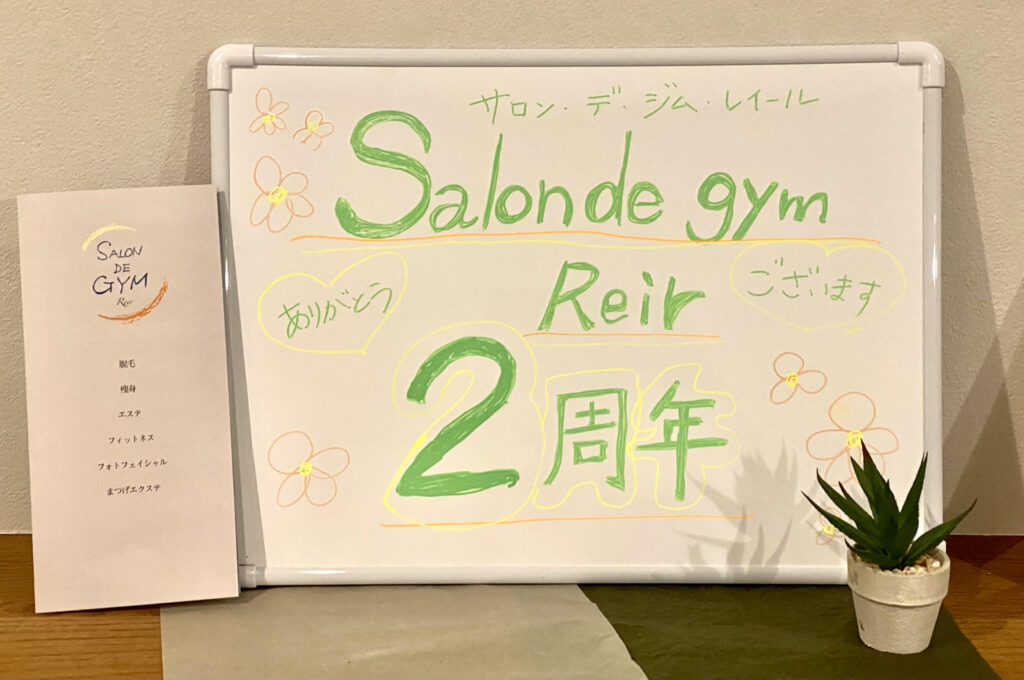 サロン・デ・ジム・レイール
Salon de gym
Reir
ありがとう
ございます
2周年
SALON
DE
GYM
Reir
脱毛
痩身
エステ
フィットネス
フォトフェイシャル
まつげエクステ